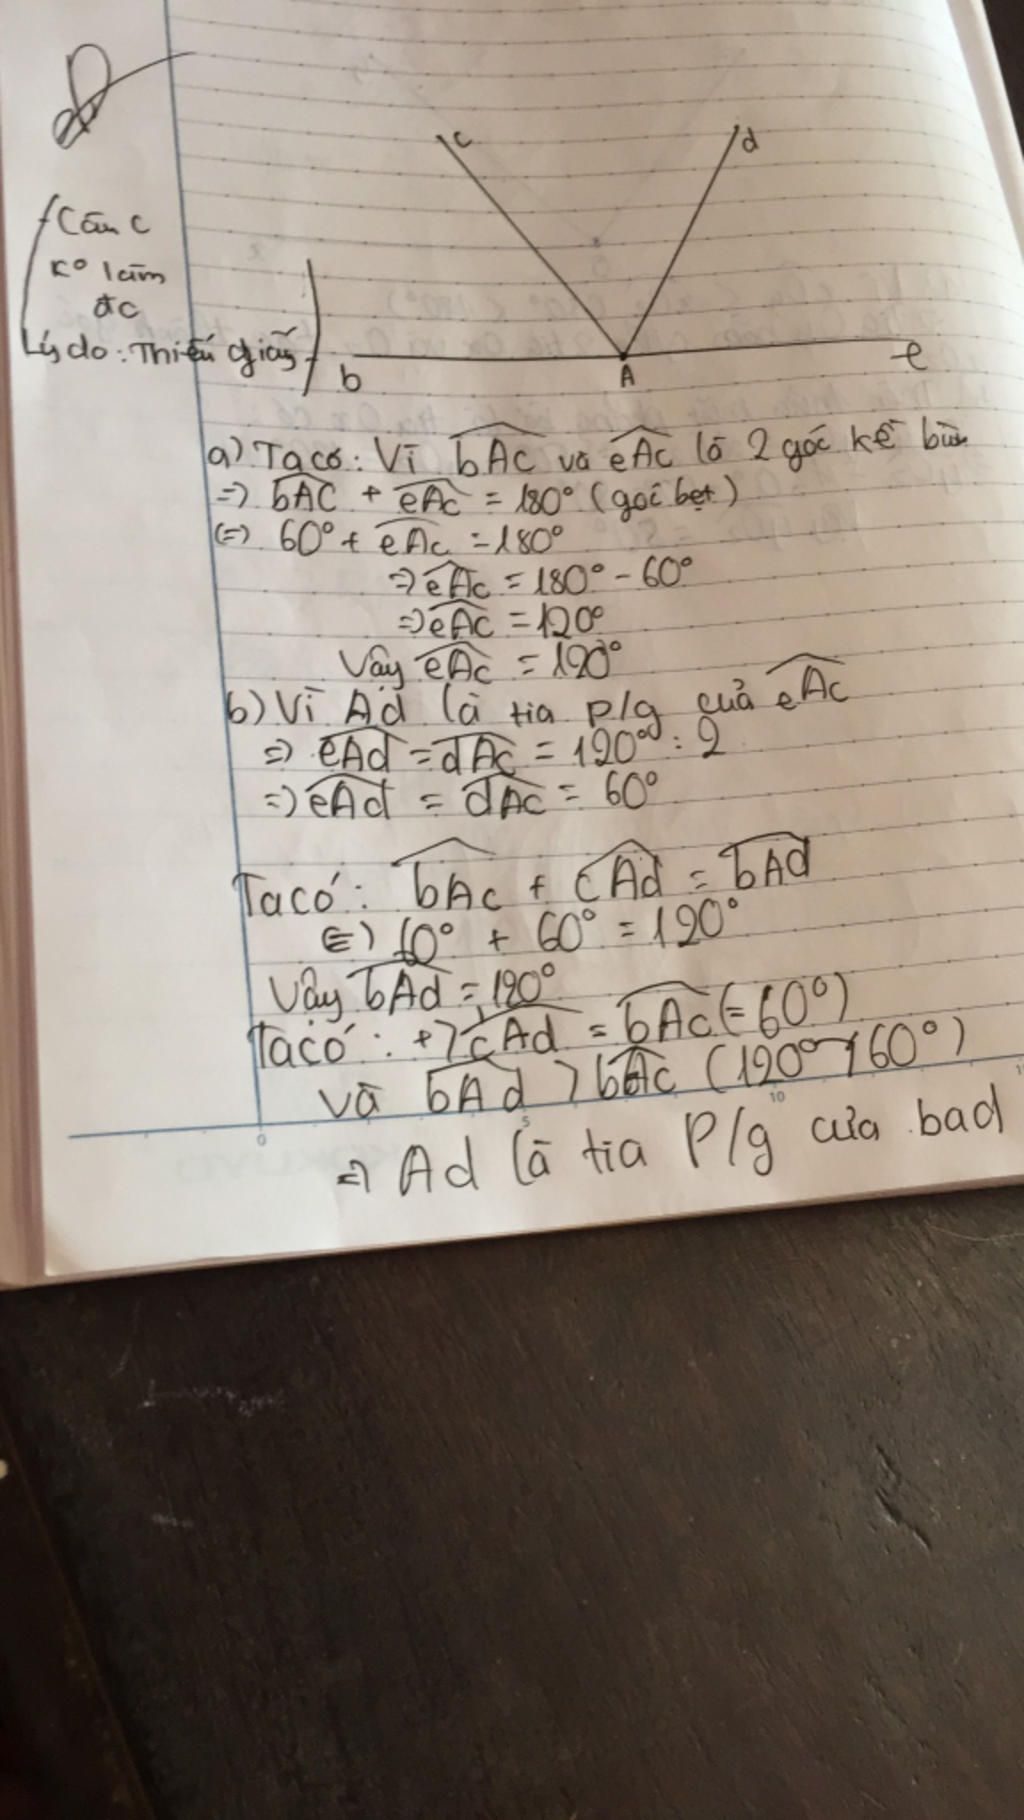 c
d
(Câu C
Kº làm
đc
Lý do: Thiếu giấy)
b
A
e
a) Ta có: Vì bAc và eAc là 2 góc kề bù
=> bAC + eAc = 180° (góc bẹt)
(=) 60° + eAc = 180°
=> eAc = 180° - 60°
=> eAc = 120°
Vậy eAc = 120°
b) Vì Ad là tia p/g của eAc
=> eAd = dAc = 120° : 2
=> eAd = dAc = 60°
Ta có: bAc + cAd = bAd
(=) 60° + 60° = 120°
Vậy bAd = 120°
Ta có: +) cAd = bAc (= 60°)
và bAd > bAc (120° > 60°)
0
5
10
=> Ad là tia P/g cửa bad